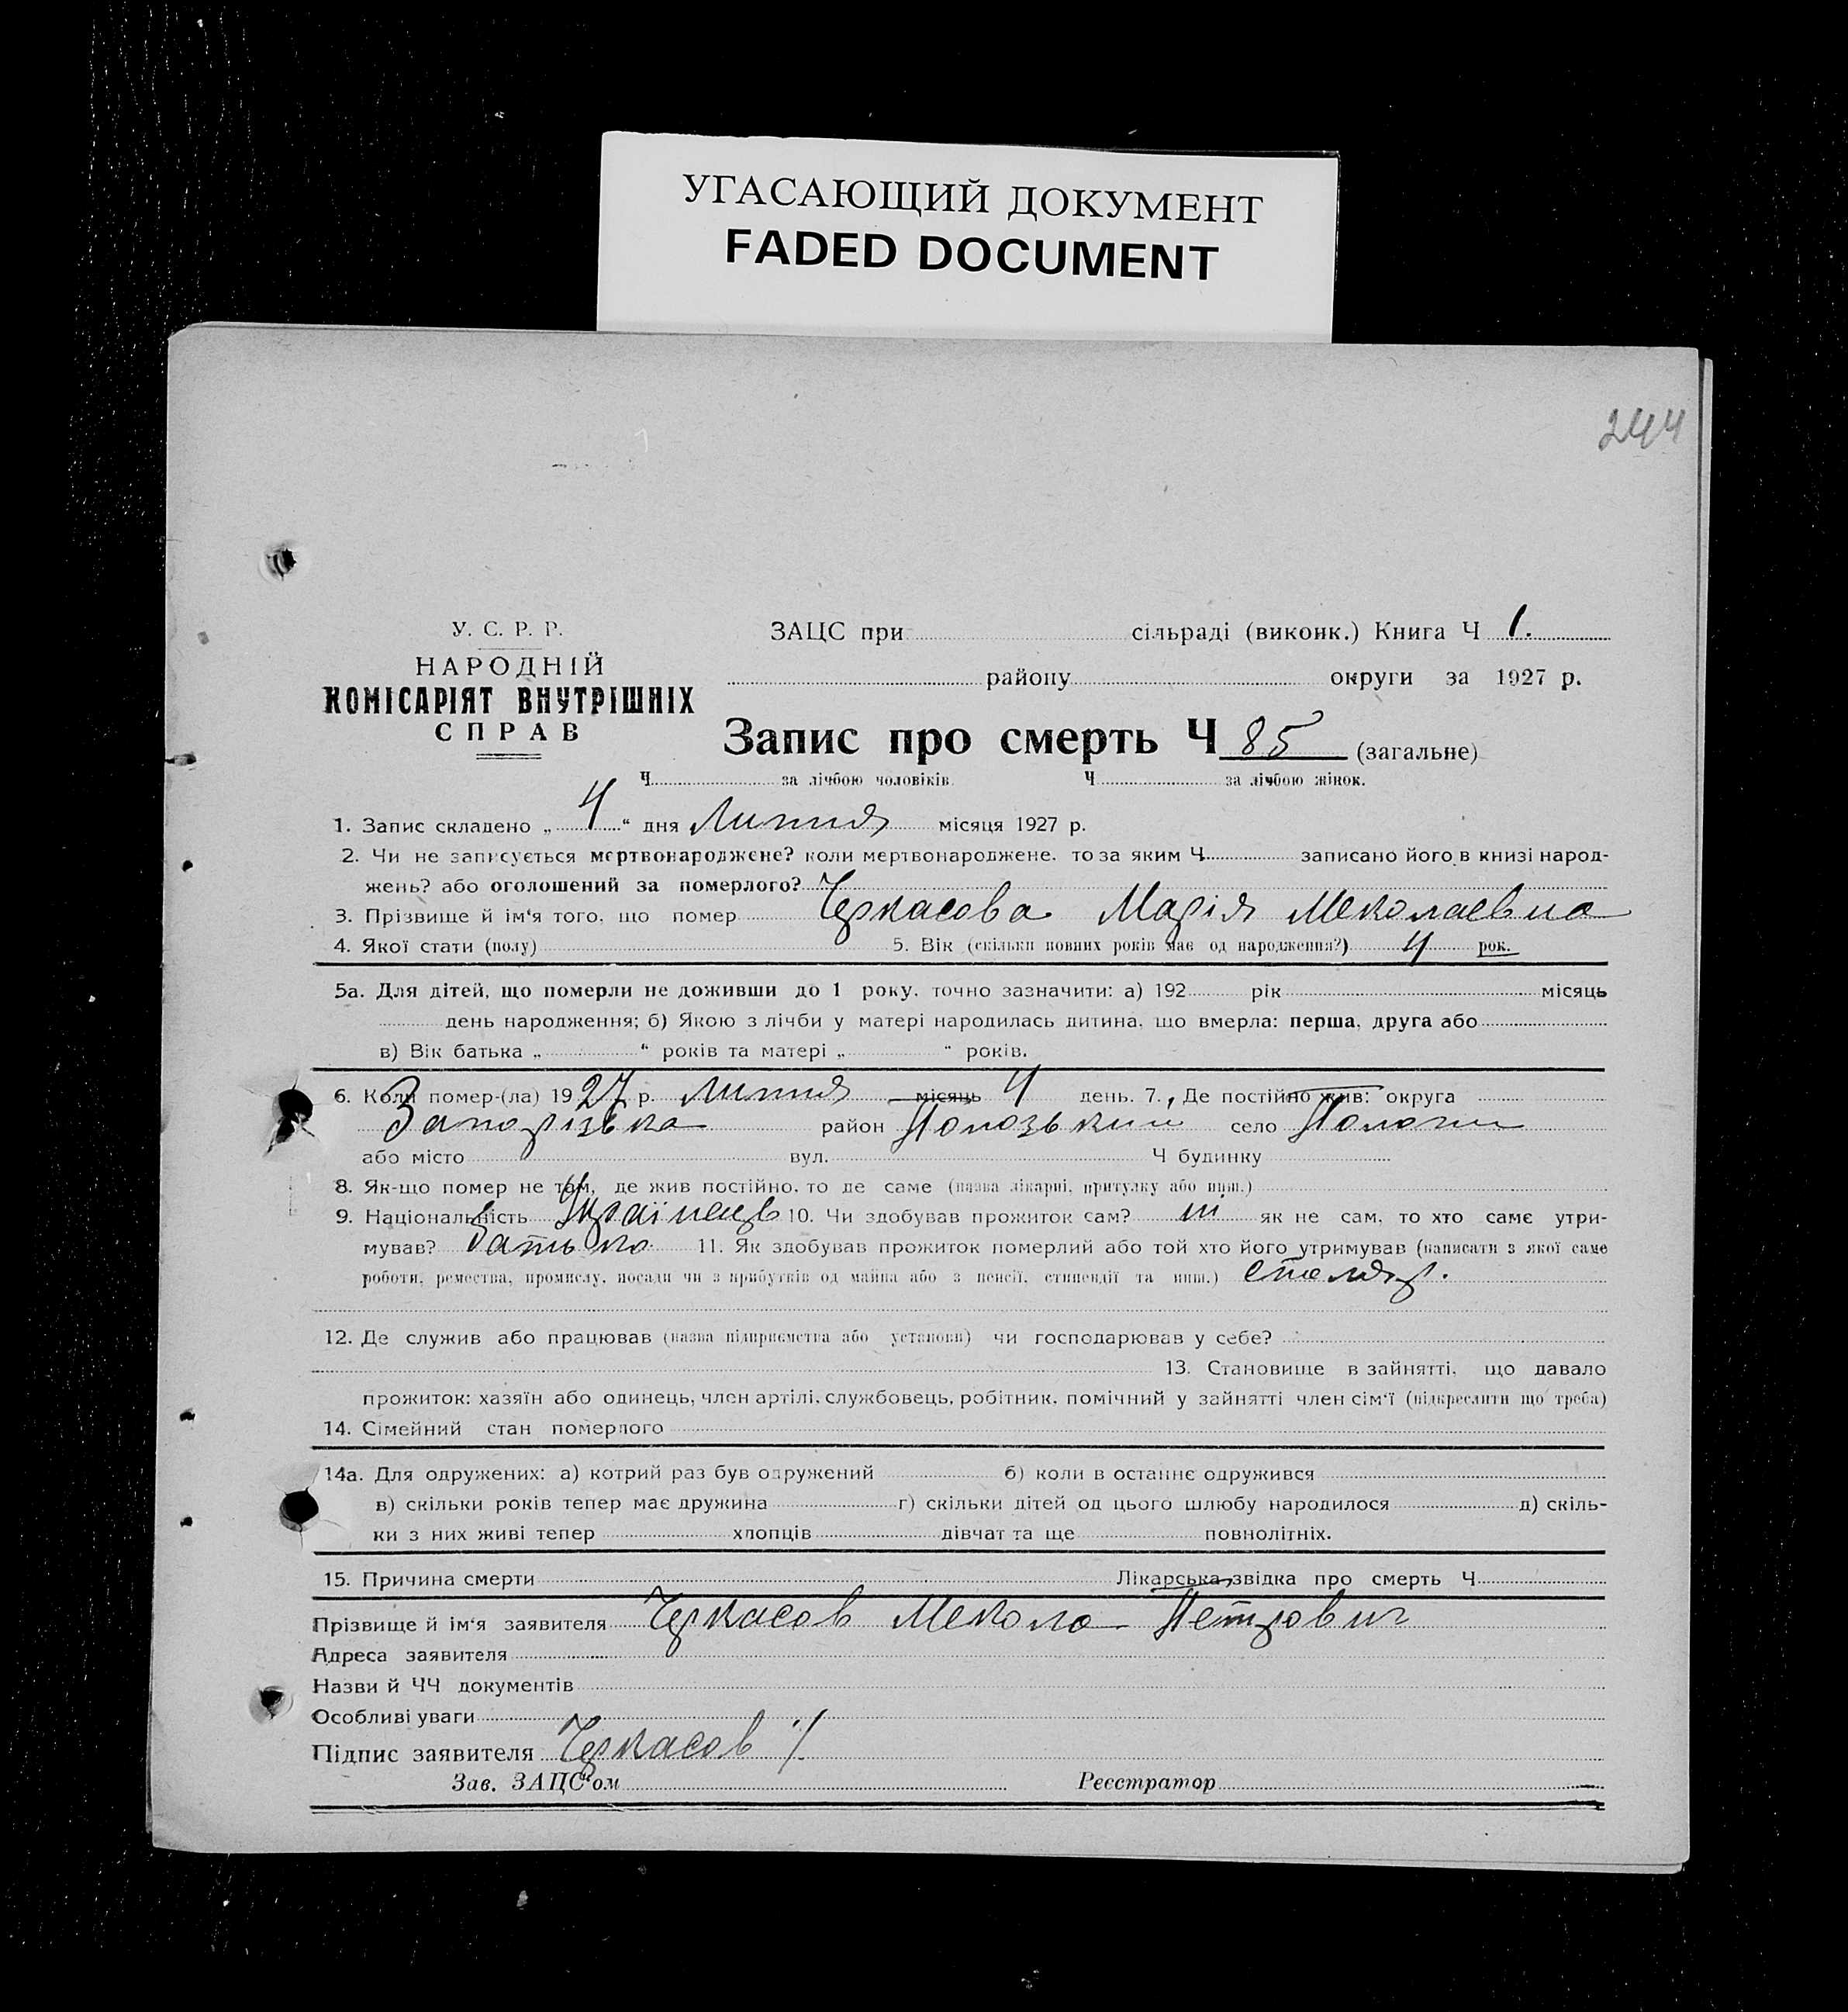 УГАСАЮЩИЙ ДОКУМЕНТ
FADED DOCUMENT
244
У. С. Р. Р.
НАРОДНІЙ
КОМІСАРІЯТ ВНУТРІШНІХ
СПРАВ
ЗАЦС при сільраді (виконк.) Книга Ч 1.
району округи за 1927 р.
Запис про смерть Ч 85 (загальне)
Ч за лічбою чоловіків. Ч за лічбою жінок.
1. Запис складено „ 4 “ дня Липня місяця 1927 р.
2. Чи не записується мертвонароджене? коли мертвонароджене, то за яким Ч записано його в книзі народ-
жень? або оголошений за померлого?
3. Прізвище й ім‘я того, що помер Черкасова Марія Меколаевна
4. Якої стати (полу) 5. Вік (скільки повних років має од народження?) 4 рок.
5а. Для дітей, що померли не доживши до 1 року, точно зазначити: а) 192 рік місяць
день народження; б) Якою з лічби у матері народилась дитина, що вмерла: перша, друга або
в) Вік батька „ “ років та матері „ “ років.
6. Коли помер-(ла) 1927 р. Липня місяць 4 день. 7. Де постійно жив: округа
Запорізька район Пологський село Пологи
або місто вул. Ч будинку
8. Як-що помер не там, де жив постійно, то де саме (назва лікарні, притулку або инш.)
9. Національність Украінець 10. Чи здобував прожиток сам? ні як не сам, то хто саме утри-
мував? батько 11. Як здобував прожиток померлий або той хто його утримував (написати з якої саме
роботи, ремества, промислу, посади чи з прибутків од майна або з пенсії, стипендії та инш.) столяр.
12. Де служив або працював (назва підприємства або установи) чи господарював у себе?
13. Становище в зайнятті, що давало
прожиток: хазяїн або одинець, член артілі, службовець, робітник, помічний у зайнятті член сім‘ї (підкреслити що треба)
14. Сімейний стан померлого
14а. Для одружених: а) котрий раз був одружений б) коли в останнє одружився
в) скільки років тепер має дружина г) скільки дітей од цього шлюбу народилося д) скіль-
ки з них живі тепер хлопців дівчат та ще повнолітніх.
15. Причина смерти Лікарська звідка про смерть Ч
Прізвище й ім‘я заявителя Черкасов Мекола Петрович
Адреса заявителя
Назви й ЧЧ документів
Особливі уваги
Підпис заявителя Черкасов
Зав. ЗАЦС‘ом Реєстратор